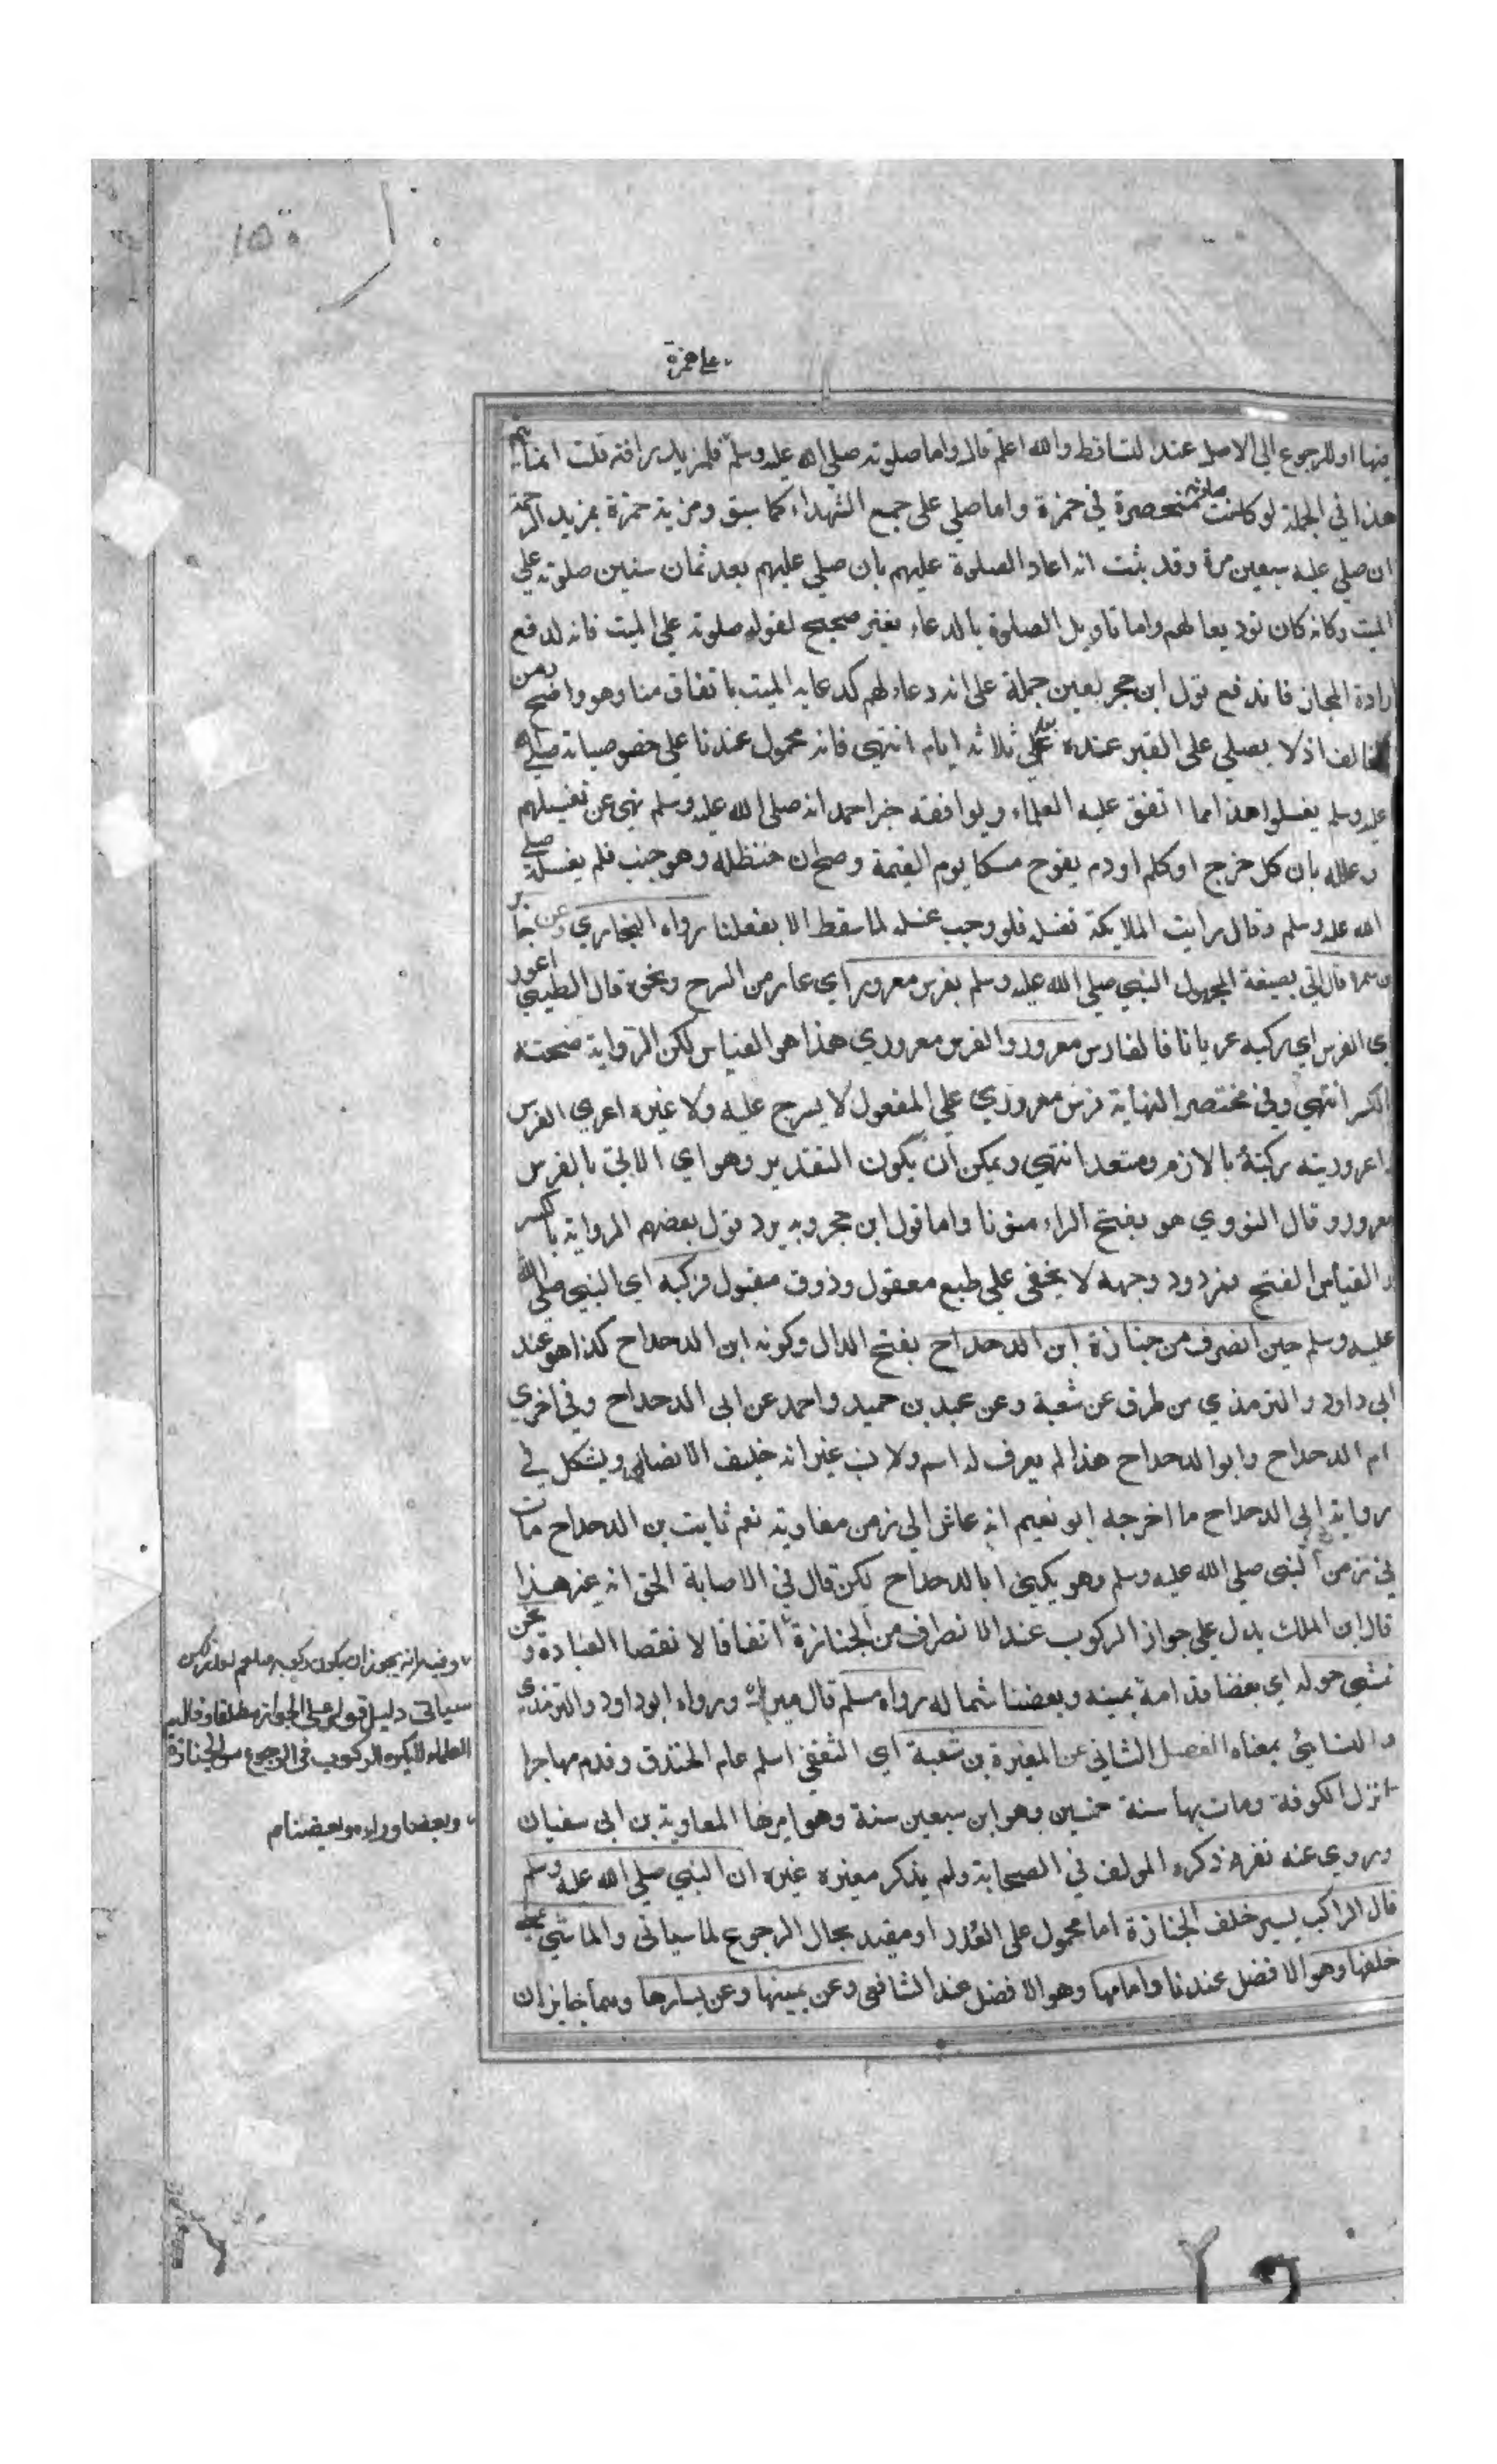 ١٥٥
علي حمزة
فيها او للرجوع الي الاصل عند التساقط والله اعلم قال واما صلوته صلي الله عليه وسلم فلمزيد رافته قلت انما يتم
هذا في الجملة لو كانت صلوته منحصرة في حمزة واما صلي علي جميع الشهداء كما سبق ومزية حمزة بمزيد الرحمة
ان صلي عليه سبعين مرة وقد ثبت انه اعاد الصلوة عليهم بان صلي عليهم بعد ثمان سنين صلوته علي
الميت وكانه كان توديعا لهم واما تاويل الصلوة بالدعاء بغير صحيح لقوله صلوته علي الميت فانه لدفع
ارادة المجاز فاندفع قول ابن حجر بعين حمله علي انه دعاء لهم كدعايه الميت باتفاق منا وهو واضح ومن
المخالف اذ لا يصلي علي القبر عنده بعد ثلاثة ايام انتهي فانه محمول عندنا علي خصوصياته صلي الله
عليه وسلم يغسلوا هذا مما اتفق عليه العلماء ويوافقه خبر احمد انه صلي الله عليه وسلم نهي عن تغسيلهم
وعلله بان كل جرح او كلم او دم يفوح مسكا يوم القيمة وصح ان حنظلة وهو جنب فلم يغسله صلي
الله عليه وسلم وقال رايت الملايكة تغسله فلو وجب غسله لما سقط الا بفعلنا رواه البخاري وعن جابر
بن سمرة قال اتي بصيغة المجهول النبي صلي الله عليه وسلم بفرس معرور اي عار من السرج ونحوه قال الطيبي اعرور
ي الفرس اي ركبه عريانا فالفارس معرور والفرس معروري هذا هو القياس لكن الرواية صحت
الكسر انتهي وفي مختصر النهاية فرس معروري علي المفعول لا يسرج عليه ولا غيره اعري الفرس
واعروريته ركبته بالازم ومتعد انتهي ويمكن ان يكون التقدير وهو اي الاتي بالفرس
معرور وقال النووي هو بفتح الراء منونا واما قول ابن حجر وبه يرد قول بعضهم الرواية بالكسر
والقياس الفتح بمردود وجهه لا يخفي علي طبع معقول وذوق مقبول فركبه اي النبي صلي الله
عليه وسلم حين انصرف من جنازة ابن الدحداح بفتح الدال وكونه ابن الدحداح كذا هو عند
ابي داود والترمذي من طرق عن شعبة وعن عبد بن حميد واحمد عن ابي الدحداح وفي اخري
ام الدحداح وابو الدحداح هذا لم يعرف له اسم ولا نسب غير انه حليف الانصار ويشكل في
رواية ابي الدحداح ما اخرجه ابو نعيم انه عاش الي زمن معاوية نعم ثابت بن الدحداح مات
في زمن النبي صلي الله عليه وسلم وهو يكني ابا الدحداح لكن قال في الاصابة الحق انه غير هذا
قال ابن الملك يدل علي جواز الركوب عند الانصراف من الجنازة اتفاقا لا نقصا العبادة و نحن
نمشي حوله اي بعضنا قدامه يمينه وبعضنا شماله رواه مسلم قال ميرك ورواه ابو داود والترمذي
والنسائي بمعناه الفصل الثاني عن المغيرة بن شعبة اي الثقفي اسلم عام الخندق وقدم مهاجرا
نزل الكوفة ومات بها سنة خمسين وهو ابن سبعين سنة وهو امرها المعاوية بن ابي سفيان
وروي عنه نفر ذكره المولف في الصحابة ولم يذكر مغيره غيره ان النبي صلي الله عليه وسلم
قال الراكب يسير خلف الجنازة اما محمول علي العذر او مقيد بحال الرجوع لما سياتي والماشي يمشي
خلفها وهو الافضل عندنا وامامها وهو الافضل عند الشافعي وعن يمينها وعن يسارها وهما جايزان
وفيه انه يجوز ان يكون ركوبه صلعم لعذر لكن
سياتي دليل قولي علي الجواز مطلقا وقال
العلماء لا يكره الركوب في الرجوع من الجنازة
وبعضنا وراءه وبعضنام